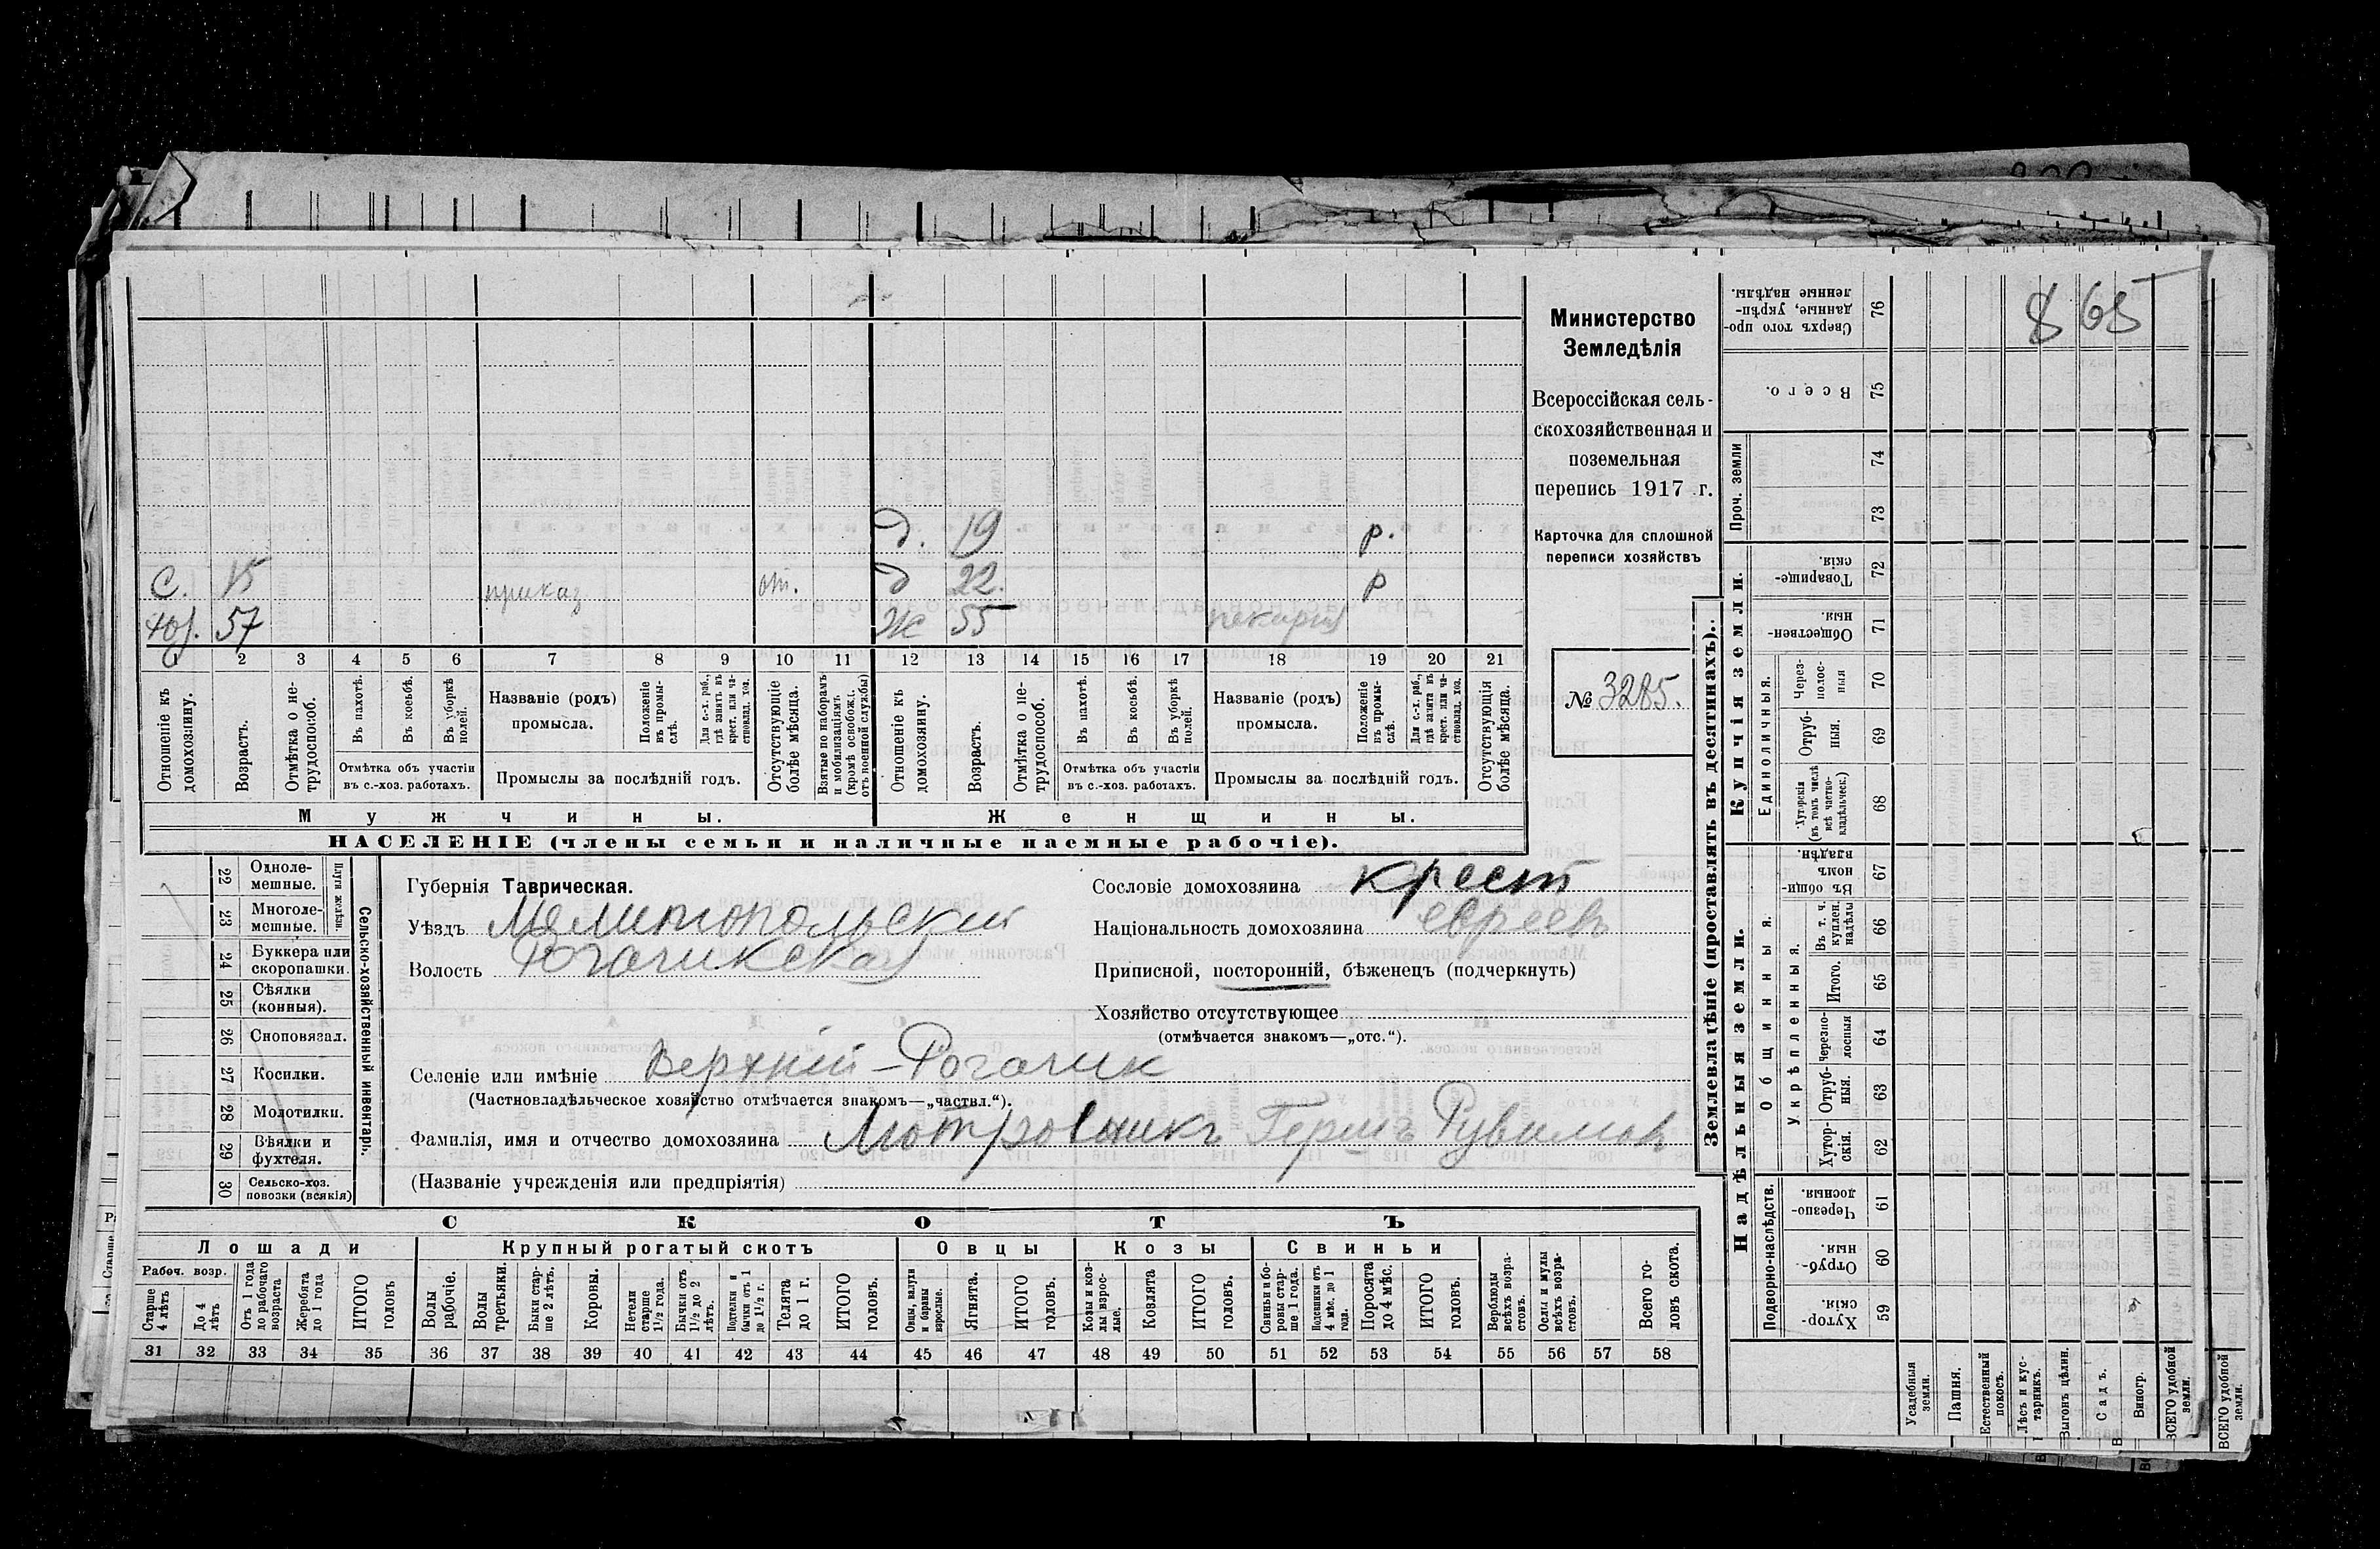 8 65
Министерство
Земледѣлія
Всероссійская сель-
скохозяйственная и
поземельная
перепись 1917 г.
Карточка для сплошной
переписи хозяйствъ
№ 3285.
д. 19 р.
С. 15 приказ от. д 22. р
хоз. 57 Ж 55
1 2 3 4 5 6 7 8 9 10 11 12 13 14 15 16 17 18 19 20 21
Отношеніе къ домохозяину.
Возрастъ.
Отмѣтка о не-трудоспособ.
Въ пахотѣ.
Въ косьбѣ.
Въ уборкѣ полей.
Отмѣтка объ участіи
въ с.-хоз. работахъ.
Названіе (родъ)
промысла.
Положеніе въ промы-слѣ.
Для с.-х. раб., гдѣ занятъ въ крест. или ча-стновлад. хоз.
Промыслы за послѣдній годъ.
Отсутствующіе болѣе мѣсяца.
Взятые по наборамъ и мобилизаціямъ (кромѣ освобожд. отъ военной службы)
Отношеніе къ домохозяину.
Возрастъ.
Отмѣтка о не-трудоспособ.
Въ пахотѣ.
Въ косьбѣ.
Въ уборкѣ полей.
Отмѣтка объ участіи
въ с.-хоз. работахъ.
Названіе (родъ)
промысла.
Положеніе въ промы-слѣ.
Для с.-х. раб., гдѣ занятъ въ крест. или ча-стновлад. хоз.
Промыслы за послѣдній годъ.
Отсутствующія болѣе мѣсяца.
Мужчины. Женщины.
НАСЕЛЕНІЕ (члены семьи и наличные наемные рабочіе).
22 Одноле-мешные.
23 Многоле-мешные.
24 Буккера или скоропашки.
25 Сѣялки (конныя).
26 Сноповязал.
27 Косилки.
28 Молотилки.
29 Вѣялки и фухтеля.
30 Сельско-хоз. повозки (всякія)
Плуги желѣзн.
Сельско-хозяйственный инвентарь.
Губернія Таврическая.
Уѣздъ Мелитопольский
Волость Рогачикская
Сословіе домохозяина крест
Національность домохозяина евреевъ
Приписной, посторонній, бѣженецъ (подчеркнуть)
Хозяйство отсутствующее
(отмѣчается знакомъ—„отс.“).
Селеніе или имѣніе Верхній-Рогачик
(Частновладѣльческое хозяйство отмѣчается знакомъ—„частвл.“).
Фамилія, имя и отчество домохозяина Гершъ Рувимовъ
(Названіе учрежденія или предпріятія)
СКОТЪ
Лошади Крупный рогатый скотъ Овцы Козы Свиньи
Рабоч. возр.
Старше 4 лѣтъ
До 4 лѣтъ
Отъ 1 года до рабочаго возраста
Жеребята до 1 года
ИТОГО головъ
Волы рабочіе.
Волы третьяки.
Быки стар-ше 2 лѣтъ.
Коровы.
Нетели старше 1½ года.
Бычки отъ 1½ до 2 лѣтъ.
Подтелки и бычки отъ 1 до 1½ г.
Телята до 1 г.
ИТОГО головъ.
Овцы, валухи и бараны взрослые.
Ягнята.
ИТОГО головъ.
Козы и коз-лы взрос-лые.
Козлята
ИТОГО головъ.
Свиньи и бо-ровы стар-ше 1 года.
Подсвинки отъ 4 мѣс. до 1 года.
Поросята до 4 мѣс.
ИТОГО головъ.
Верблюды всѣхъ возра-стовъ.
Ослы и мулы всѣхъ возра-стовъ.
Всего го-ловъ скота.
31 32 33 34 35 36 37 38 39 40 41 42 43 44 45 46 47 48 49 50 51 52 53 54 55 56 57 58
Землевладѣніе (проставлять въ десятинахъ).
Купчія земли.
Надѣльныя земли.
Сверхъ того про-данные, укрѣп-ленные надѣлы. 76
Всего. 75
Проч. земли
74
73
Товарище-скія. 72
Обществен-ныя. 71
Единоличныя.
Через-полос-ныя 70
Отруб-ныя. 69
Хуторскія (въ томъ числѣ всѣ частно-владѣльческ.) 68
Общинныя.
Въ общи-номъ владѣн. 67
Укрѣпленныя.
Въ т. ч. куплен. надѣлы 66
Итого. 65
Черезпо-лосныя 64
Отруб-ныя. 63
Хутор-скія. 62
Подворно-наслѣдств.
Черезпо-лосныя. 61
Отруб-ныя. 60
Хутор-скія. 59
Усадебныя земли.
Пашня.
Естественный покосъ.
Лѣсъ и кус-тарникъ.
Выгонъ цѣлин.
Садъ.
Виногр.
ВСЕГО удобной земли.
ВСЕГО удобной земли.